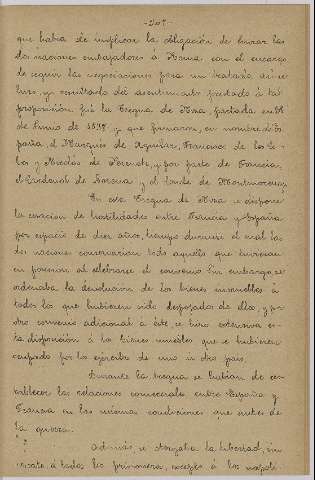 que habia de implicar la obligación de enviar las
dos naciones embajadores á Roma con el encargo
de seguir las negociaciones para un tratado
y resultado del asentimiento prestado á tal
proposición, fué la Tregua de Niza, pactada en
de Junio de 1538 y que firmaron, en nombre de Es-
paña, el Marqués de Aguilar, Francisco de los Co-
bos y Nicolás de Perenot, y por parte de Francia,
el Cardenal de Lorena y el Conde de Montmorency.
En esa Tregua de Niza se dispone
la cesación de hostilidades entre Francia y España
por espacio de diez años, tiempo durante el cual las
dos naciones conservarian todo aquello que tuviesen
en posesión al celebrarse el convenio. Sin embargo, se
ordenaba la devolución de los bienes inmuebles á
todos los que hubiesen sido despojados de ellos, y por
otro convenio adicional á éste, se hizo extensiva es-
ta disposición á los bienes muebles que se hubieran
ocupado por los ejércitos de uno ú otro pais.
Durante la tregua se habian de res-
tablecer las relaciones comerciales entre España y
Francia en las mismas condiciones que antes de
la guerra.
Además, se otorgaba la libertad, sin
rescate, á todos los prisioneros, excepto á los napoli-